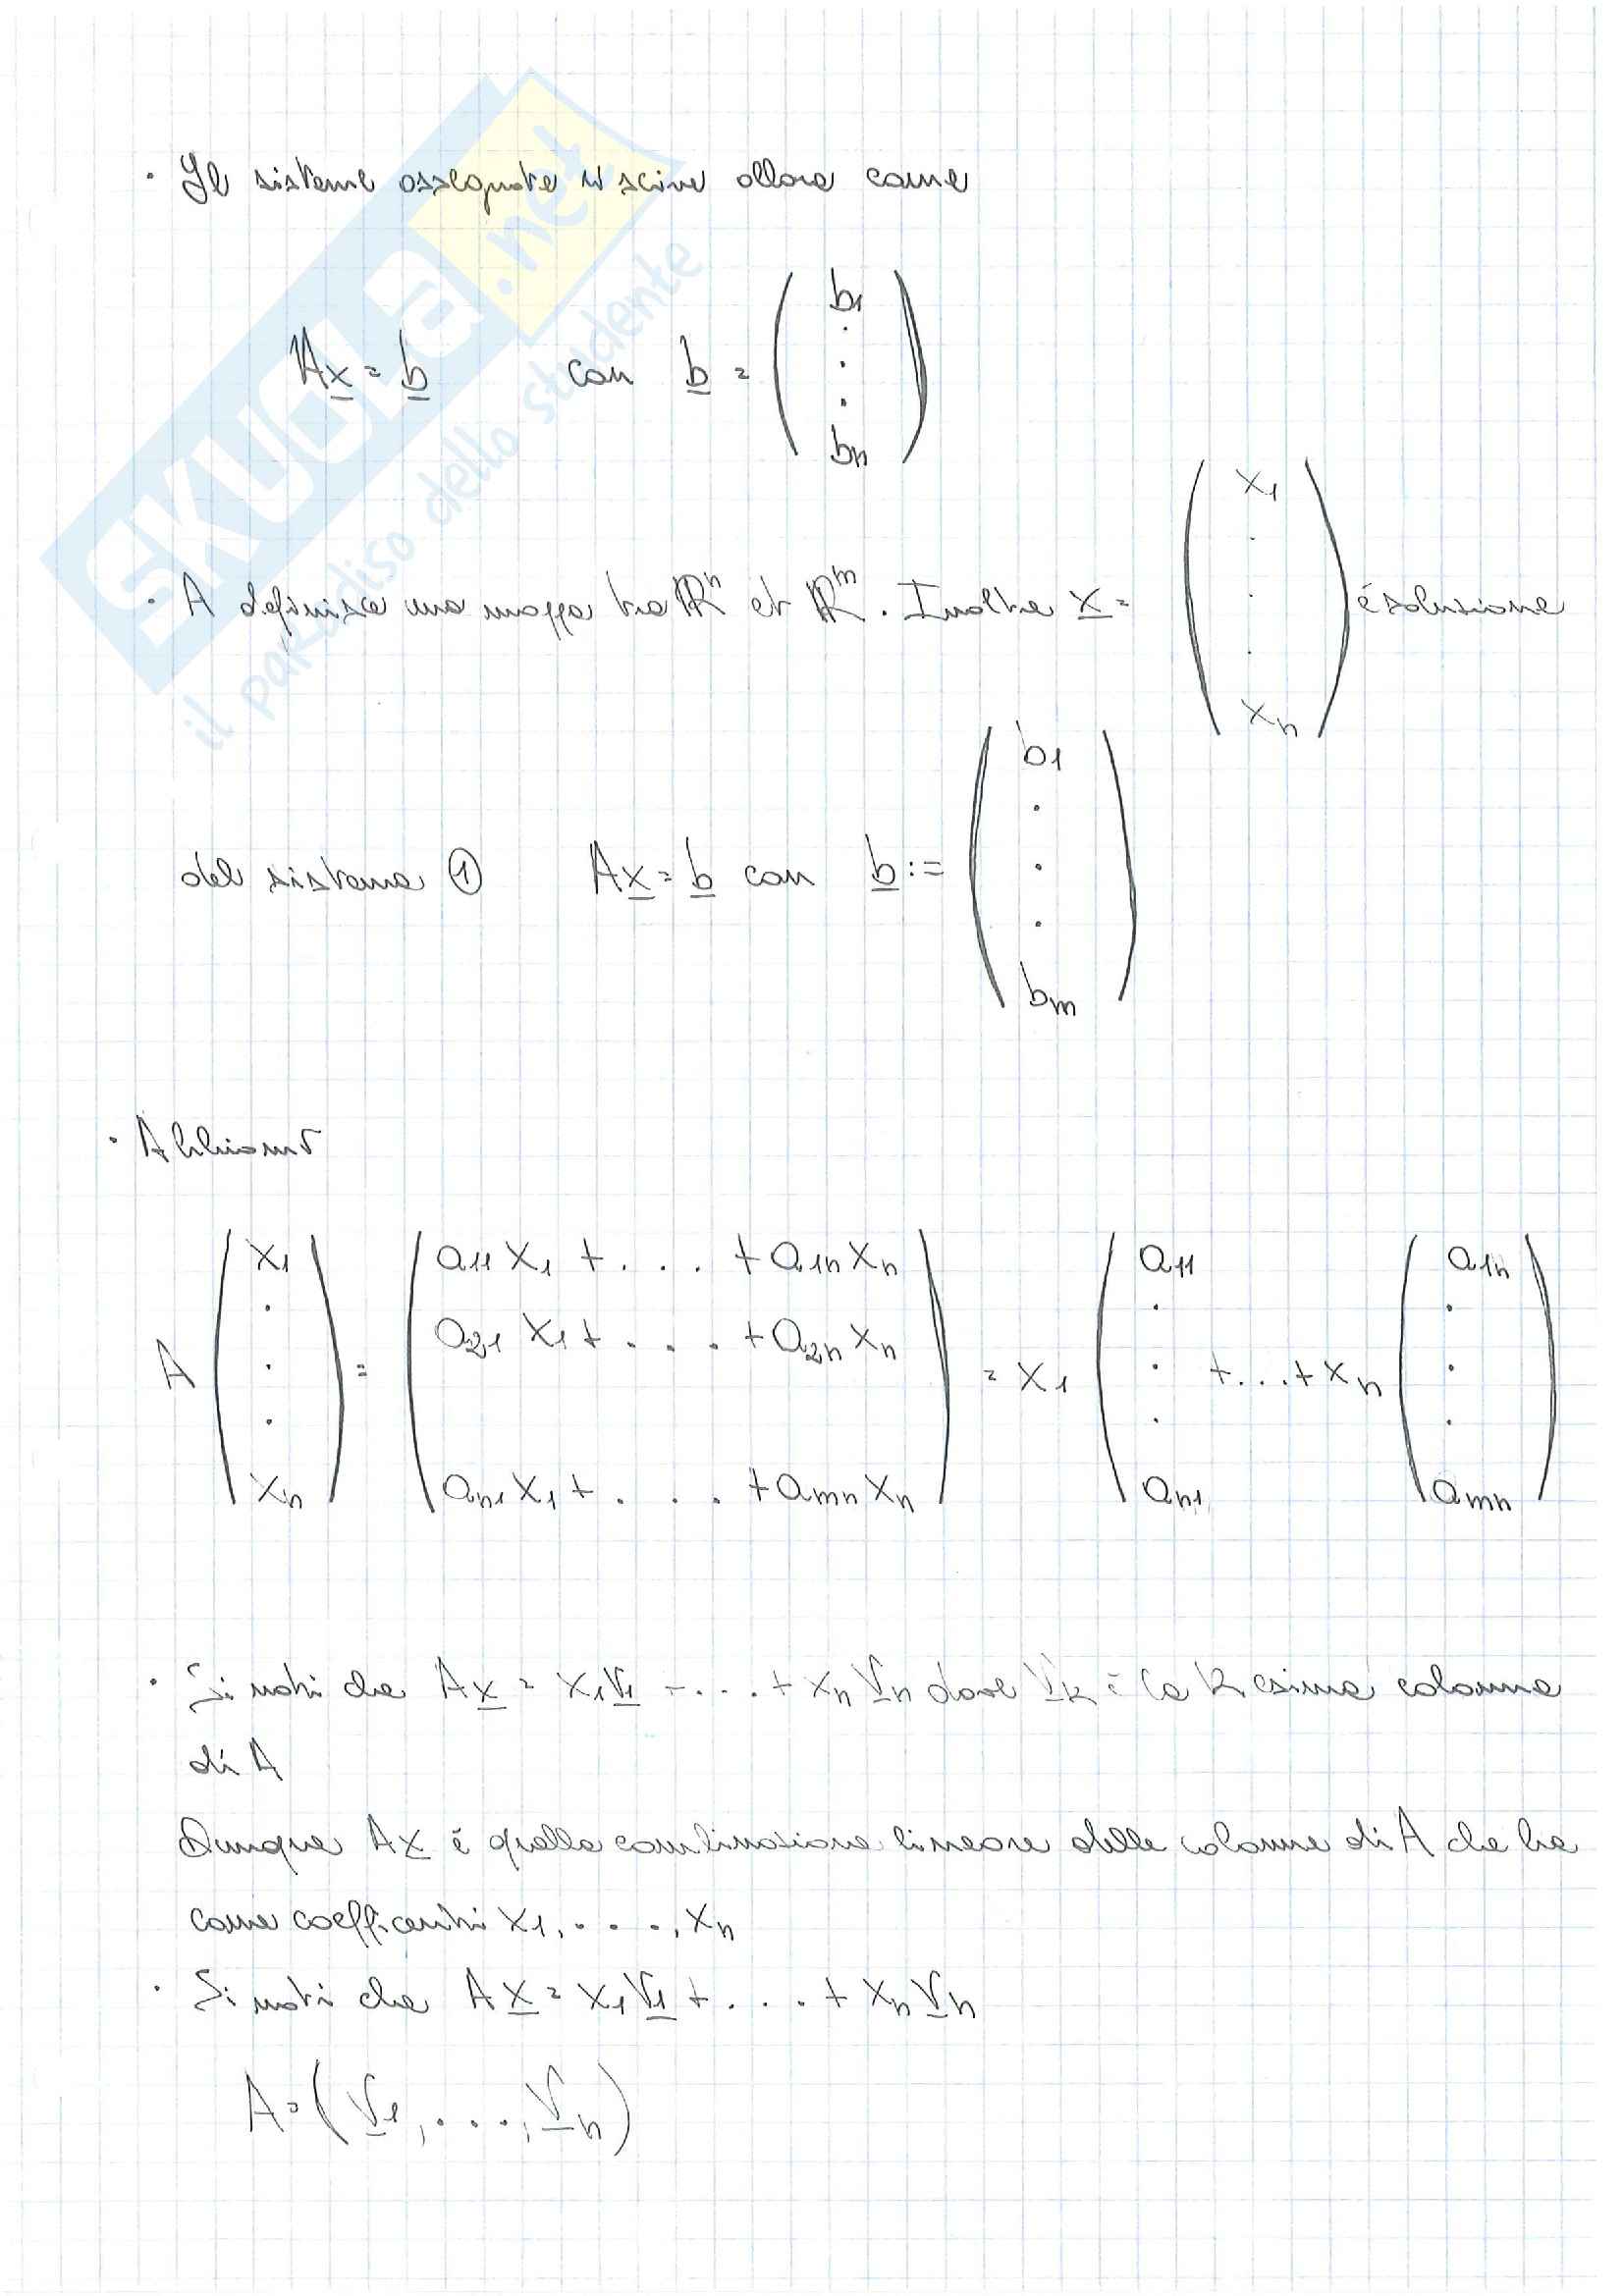 SKUOLa.net
il paradiso dello studente
· Il sistema assegnato si scrive allora come
Ax = b con b = ( b1 . . . bn )
· A definisce una mappa tra ℝⁿ et ℝᵐ. Inoltre x = ( x1 . . . xn ) è soluzione
del sistema ① Ax = b con b := ( b1 . . . bm )
· Abbiamo
A ( x1 . . . xn ) = ( a11 x1 + . . . + a1n xn
a21 x1 + . . . + a2n xn
an1 x1 + . . . + amn xn ) = x1 ( a11 . . . an1 ) + ... + xn ( a1n . . . amn )
· Si noti che Ax = x1v1 + ... + xn vn dove vk è la k esima colonna
di A
Dunque Ax è quella combinazione lineare delle colonne di A che ha
come coefficenti x1, . . . , xn
· Si noti che Ax = x1v1 + . . . + xn vn
A = ( v1, . . . , vn )